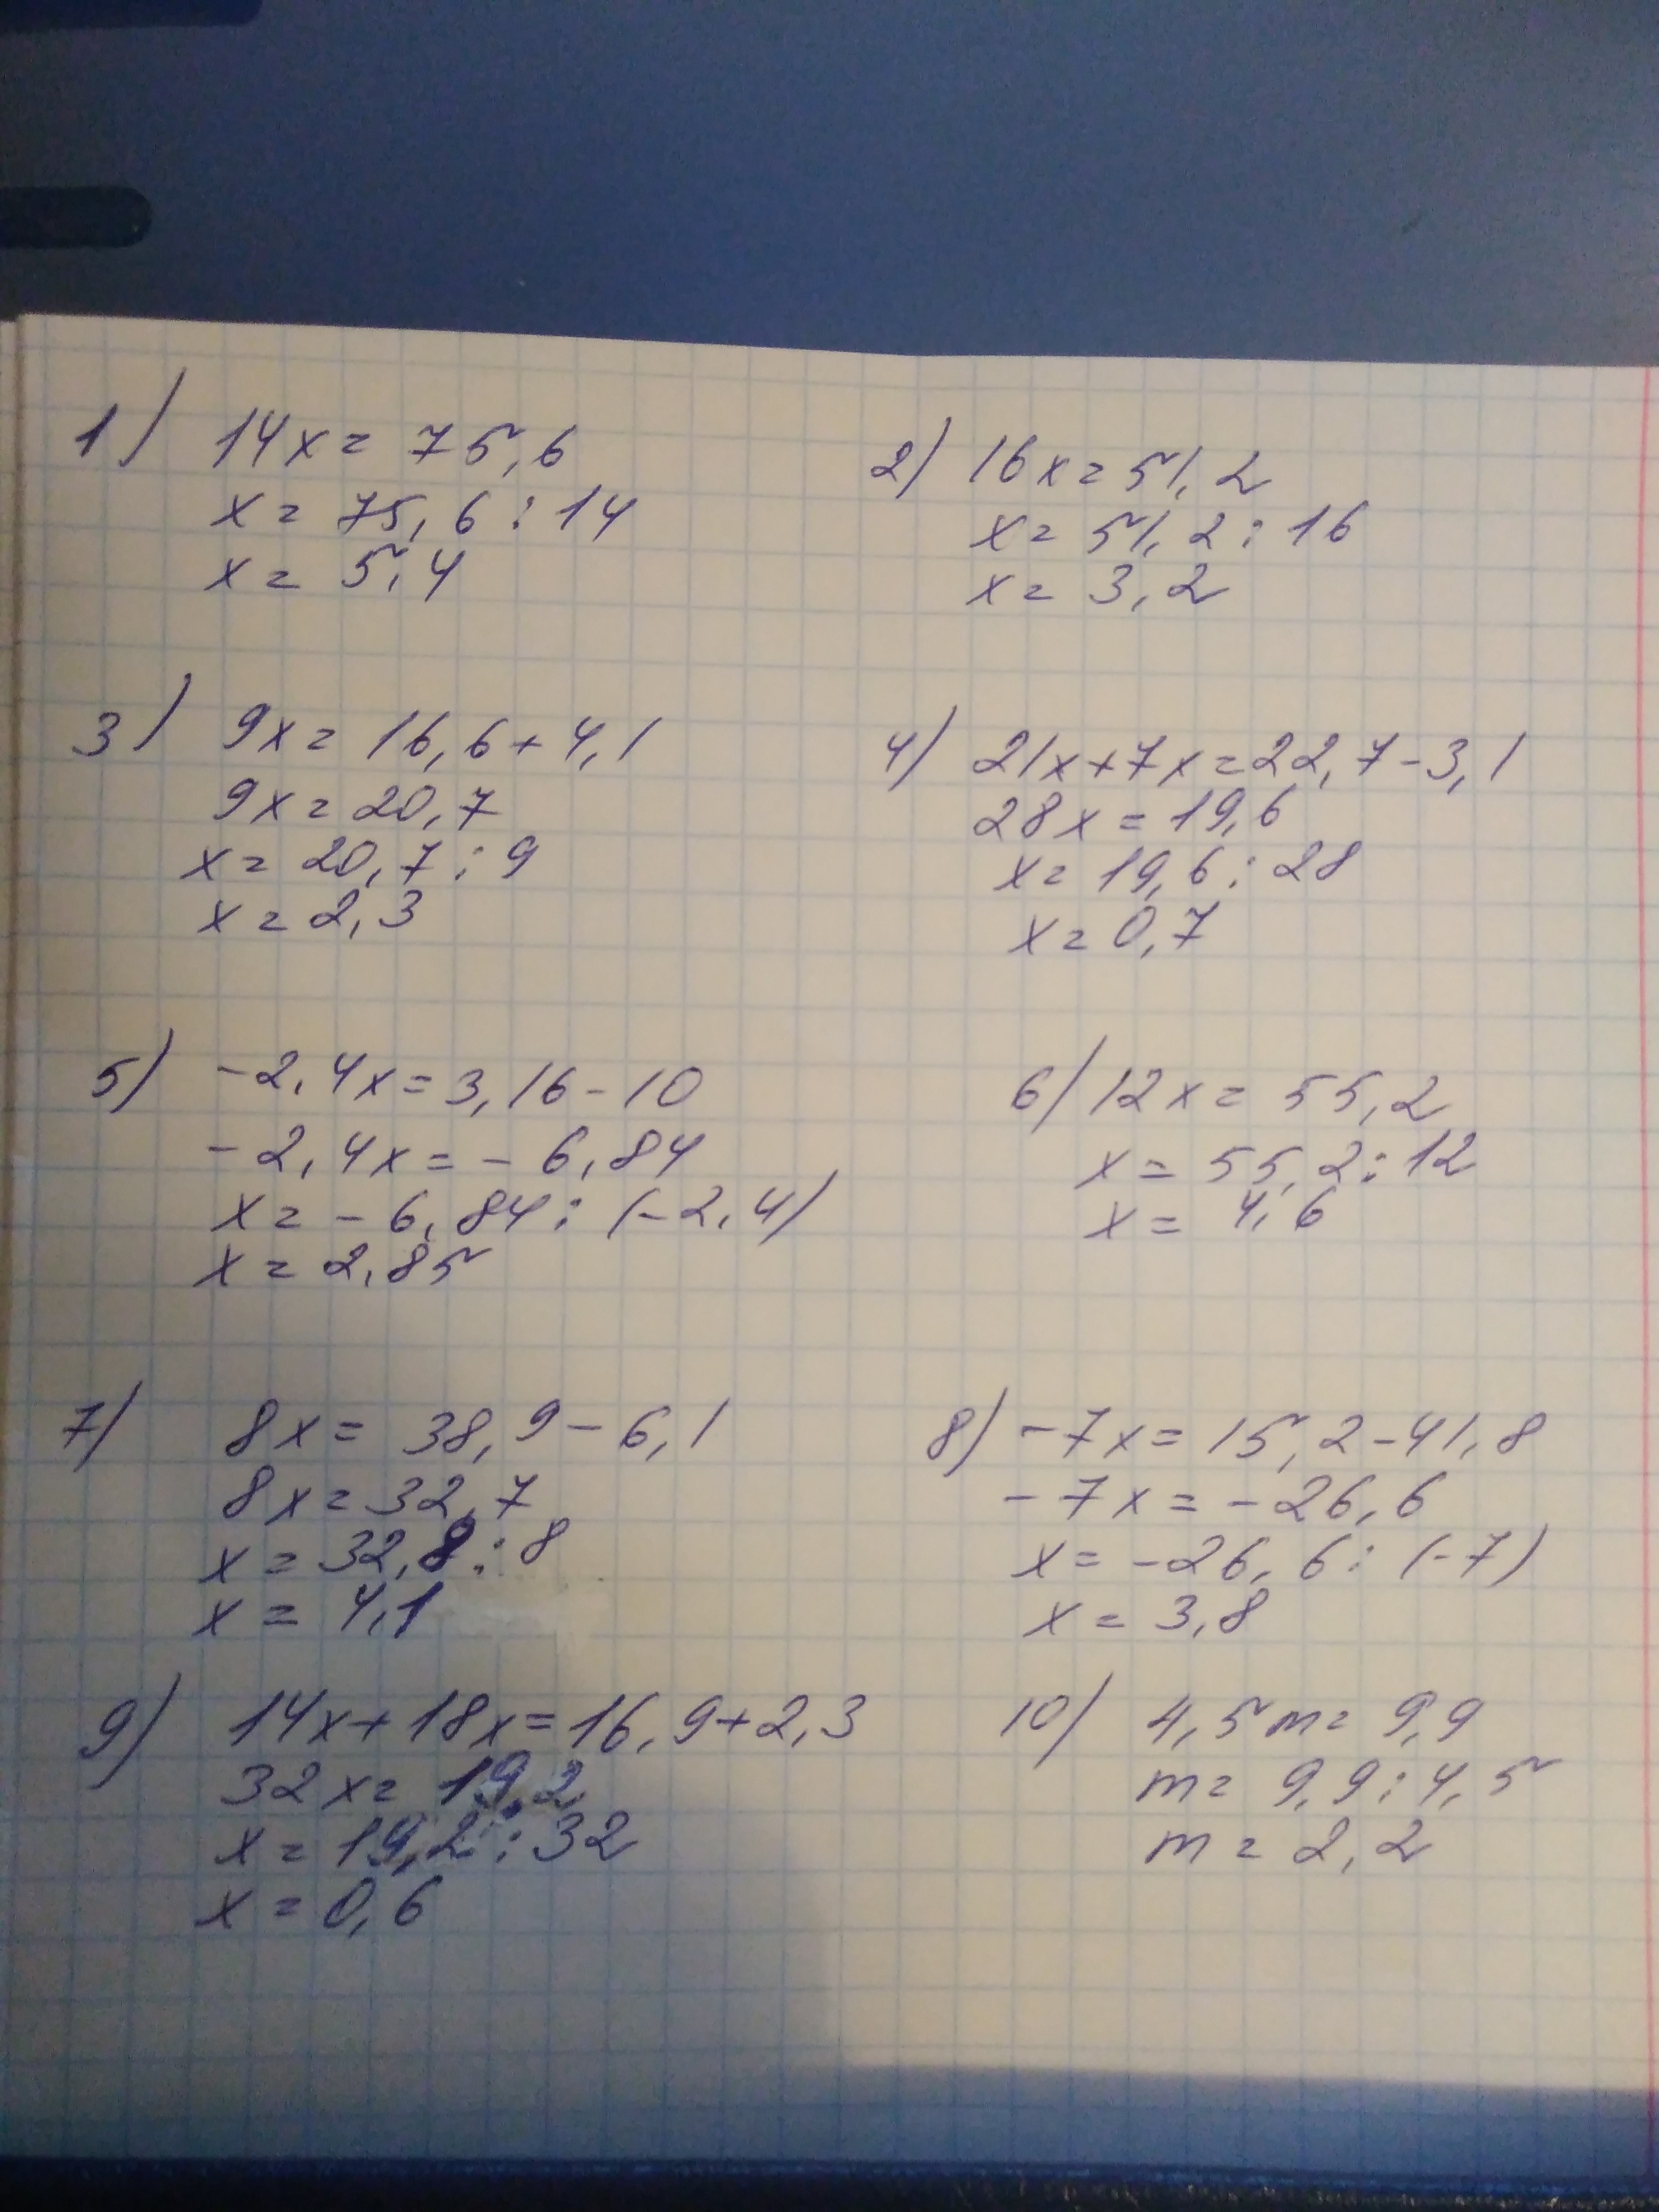 1) 14x = 75,6
x = 75,6 : 14
x = 5,4
2) 16x = 51,2
x = 51,2 : 16
x = 3,2
3) 9x = 16,6 + 4,1
9x = 20,7
x = 20,7 : 9
x = 2,3
4) 21x + 7x = 22,7 - 3,1
28x = 19,6
x = 19,6 : 28
x = 0,7
5) -2,4x = 3,16 - 10
-2,4x = -6,84
x = -6,84 : (-2,4)
x = 2,85
6) 12x = 55,2
x = 55,2 : 12
x = 4,6
7) 8x = 38,9 - 6,1
8x = 32,7
x = 32,8 : 8
x = 4,1
8) -7x = 15,2 - 41,8
-7x = -26,6
x = -26,6 : (-7)
x = 3,8
9) 14x + 18x = 16,9 + 2,3
32x = 19,2
x = 19,2 : 32
x = 0,6
10) 4,5m = 9,9
m = 9,9 : 4,5
m = 2,2